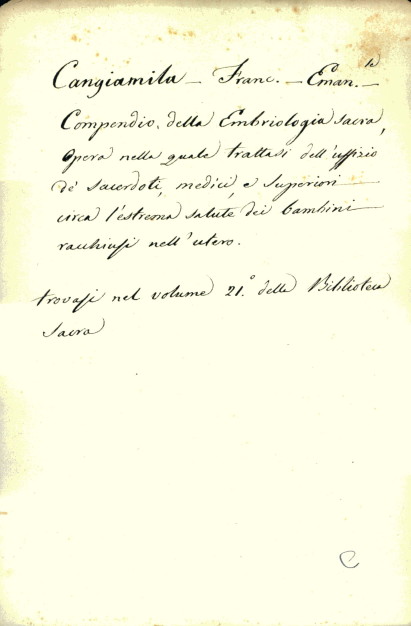 Cangiamila – Franc. – Eman.le –
Compendio della Embriologia sacra,
Opera nella quale trattasi dell'uffizio
de' sacerdoti, medici, e superiori
circa l'estrema salute dei bambini
racchiusi nell'utero.
trovasi nel volume 21.° della Biblioteca
Sacra
C